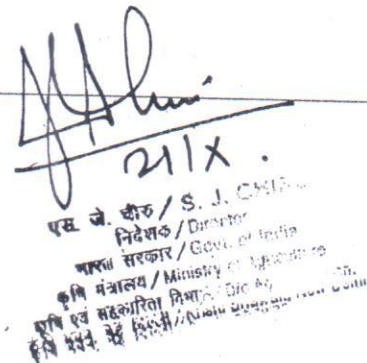 21/X.
एस. जे. चीरु / S. J.
निदेशक / Director
भारत सरकार / Govt. of India
कृषि मंत्रालय / Ministry of Agriculture
कृषि एवं सहकारिता
कृषि भवन, नई दिल्ली / Krishi Bhawan, New Delhi